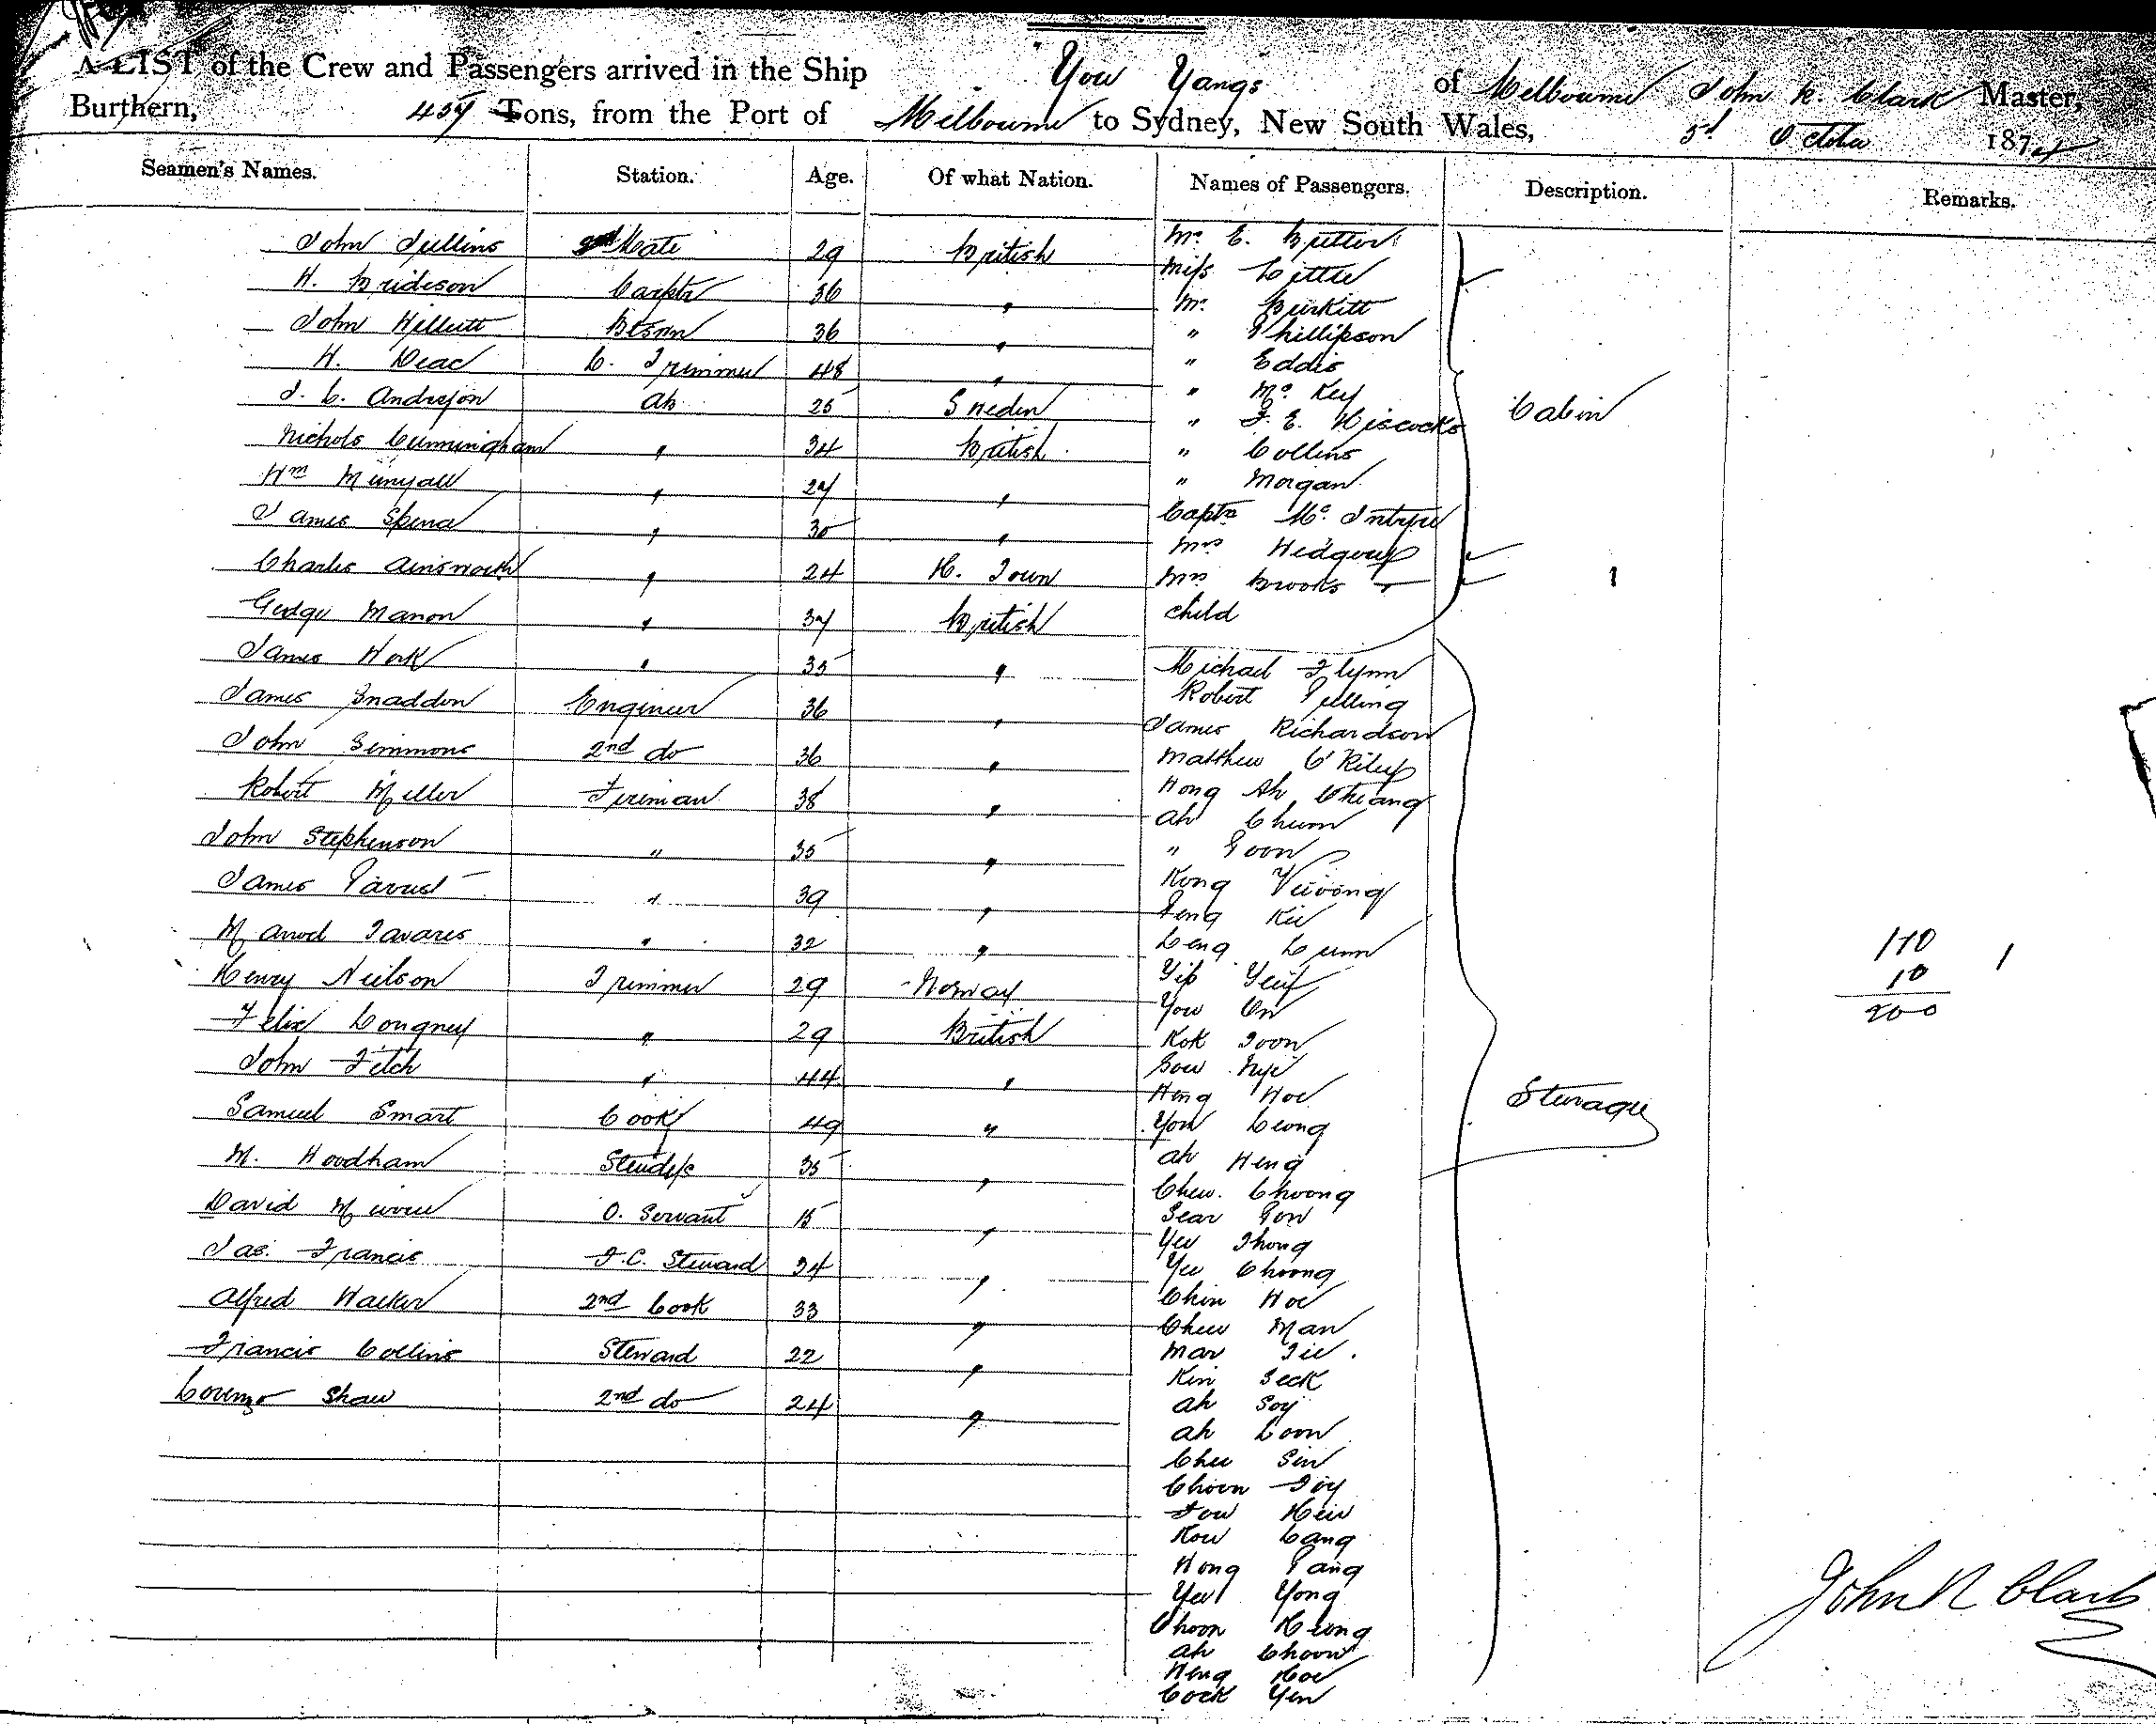 A LIST of the Crew and Passengers arrived in the Ship You Yangs of Melbourne John R. Clark Master,
Burthern, 459 Tons, from the Port of Melbourne to Sydney, New South Wales, 3d October 1874
Seamen's Names. Station. Age. Of what Nation. Names of Passengers. Description. Remarks.
John Jullins 2nd Mate 29 British
H. Brideson Carptr 36 "
John Willcutt Btsmn 36 "
H. Deac C. Trimmer 48 "
J. C. Andreson Ab 25 Sweden
Nichols Cunningham " 34 British
Wm Munyall " 27 "
James Spence " 30 "
Charles Ainsworth " 24 H. Town
George Manon " 37 British
James Work " 35 "
James Snaddon Engineer 36 "
John Simmons 2nd do 36 "
Robert Miller Fireman 38 "
John Stephenson " 35 "
James " 39 "
Manoel Tavares " 32 "
Henry Neilson Trimmer 29 Norway
Felix Longney " 29 British
John Fitch " 44 "
Samuel Smart Cook 49 "
M. Woodham Stewdss 35 "
David O. Servant 15 "
Jas. Francis F.C. Steward 34 "
Alfred Walker 2nd Cook 33 "
Francis Collins Steward 22 "
Lorenzo Shaw 2nd do 24 "
Mr. E. Butler
Miss Little
Mr. Burkitt
" Phillipson
" Eddis
" McKey
" F. E. Hiscocks
" Collins
" Morgan
Captn McIntyre
Mrs Hedgery
Mrs Brooks 1
child
Cabin
Michael Flynn
Robert Pelling
James Richardson
Matthew O'Riley
Hong Ah Chiang
Ah Chum
" Poon
Kong
Peng Kie
Leng Lum
Yip
You On
Kok Toon
Sow
Heng Hoe
You Leong
Ah Heng
Chew Choong
Sear Pow
Yee Thong
Yee Choong
Chin Hoe
Chew Man
Mar Tie
Kin Seck
Ah Soy
Ah Loon
Chee Sin
Choon Foy
Fow Hew
Kow Cang
Hong Pang
Yee Yong
Choon Keong
Ah Choon
Heng Hoe
Cock Yen
Steerage
110 1
10
200
John R Clark